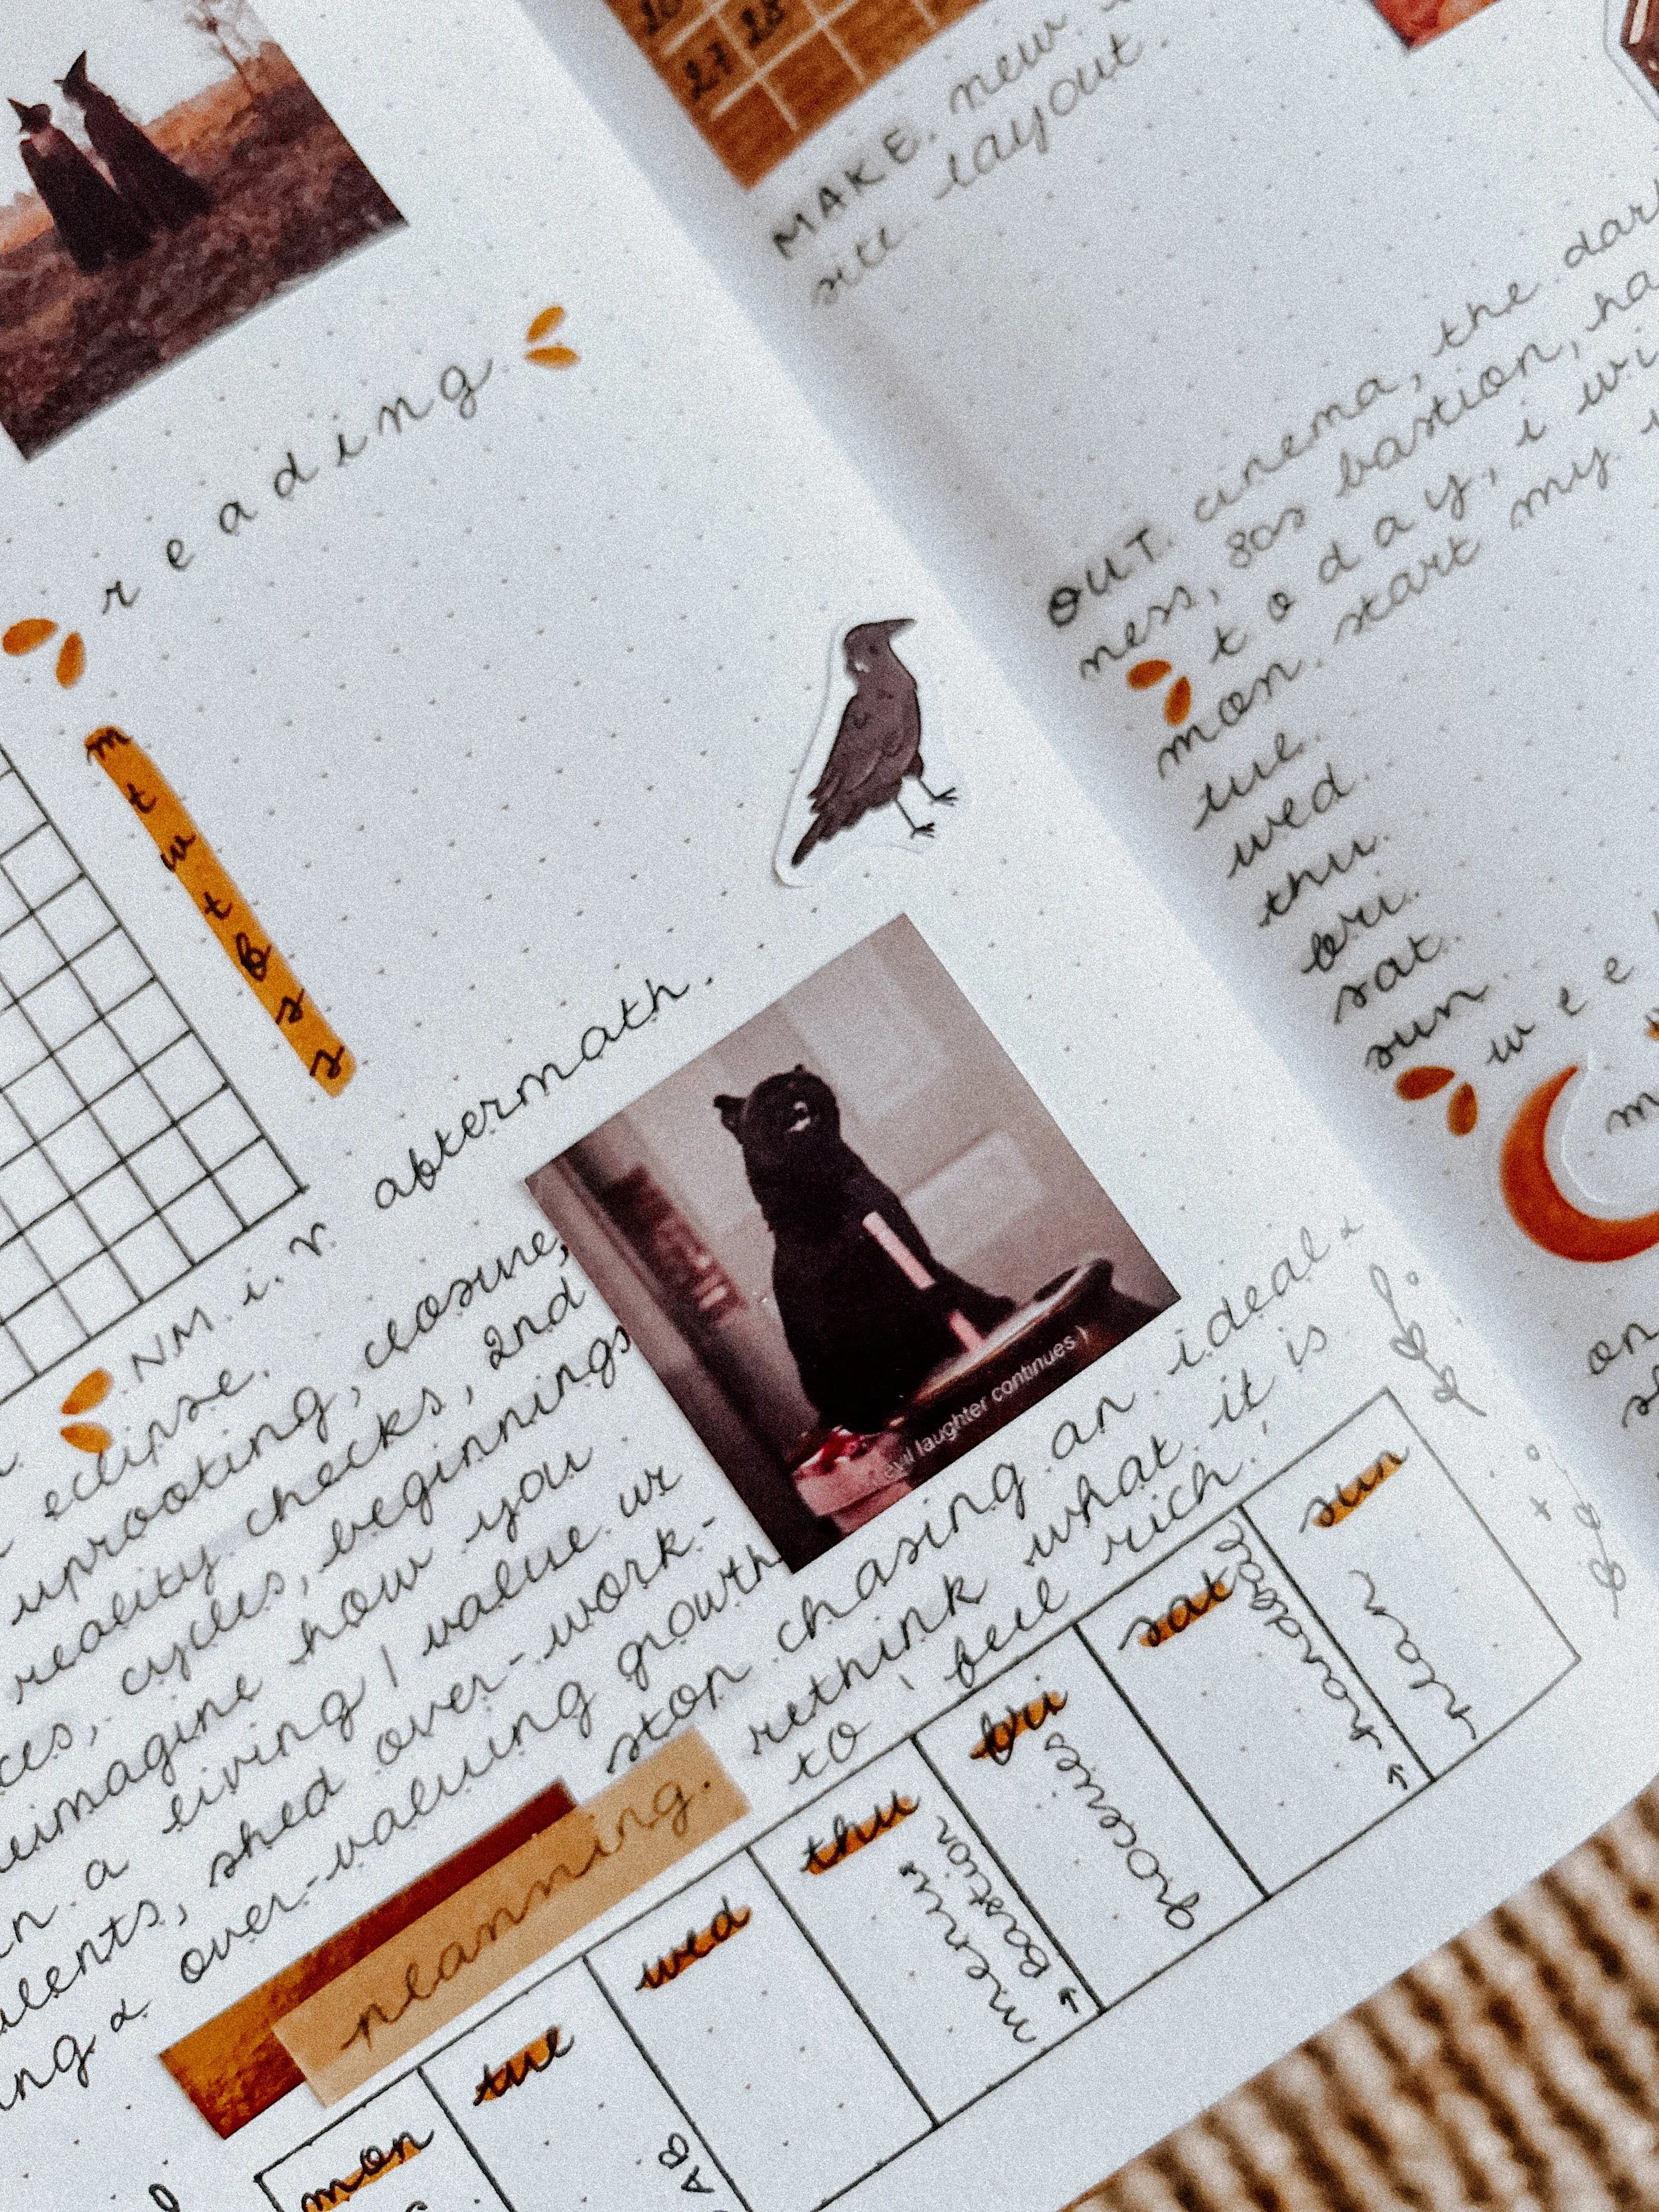 reading.
m
t
w
t
f
s
s
NM. i. r aftermath.
eclipse.
uprooting, closure,
reality checks, 2nd
cycles, beginnings
reimagine how you
a living / value ur
shed over-work-
ing & over-valuing growth
(evil laughter continues)
stop chasing an ideal &
rethink what it is
to 'feel rich'
planning.
mon
tue
AB
wed
thu
menis
→ Bastion
fri
groceries
sat
hardgoal
→
sun
plan
26
27 28
MAKE. new
site layout.
OUT. cinema, the dark
ness, 80s bastion, ha
today, i wi
mon. start my
tue.
wed.
thu.
fri.
sat.
sun.
wee
m
on